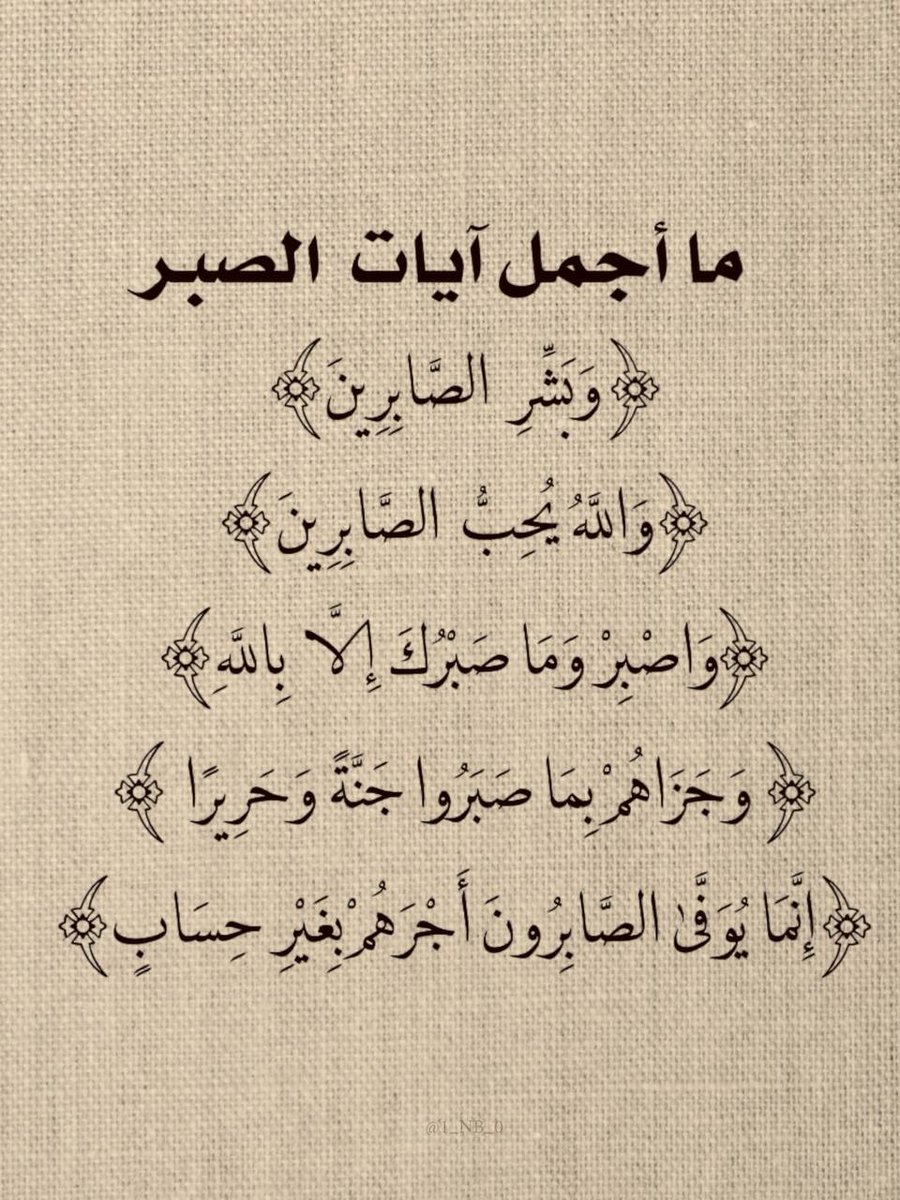 ما أجمل آيات الصبر
﴿وَبَشِّرِ الصَّابِرِينَ﴾
﴿وَاللَّهُ يُحِبُّ الصَّابِرِينَ﴾
﴿وَاصْبِرْ وَمَا صَبْرُكَ إِلَّا بِاللَّهِ﴾
﴿وَجَزَاهُمْ بِمَا صَبَرُوا جَنَّةً وَحَرِيرًا﴾
﴿إِنَّمَا يُوَفَّىٰ الصَّابِرُونَ أَجْرَهُمْ بِغَيْرِ حِسَابٍ﴾
@1_NB_0